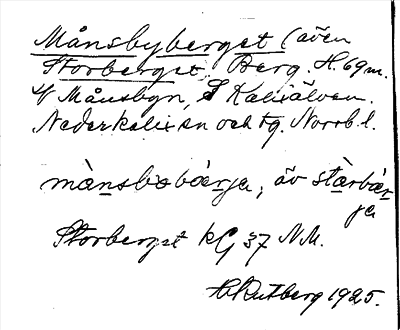 Månsbyberget (även
Storberget, Berg. H. 69 m.
V Månsbyn, S Kalixälven.
Nederkalix sn och tg. Norrb. l.
mànsbəbær̀ja, äv stærbær-
ja
Storberget kG 37 N.M.
H Rutberg 1925.